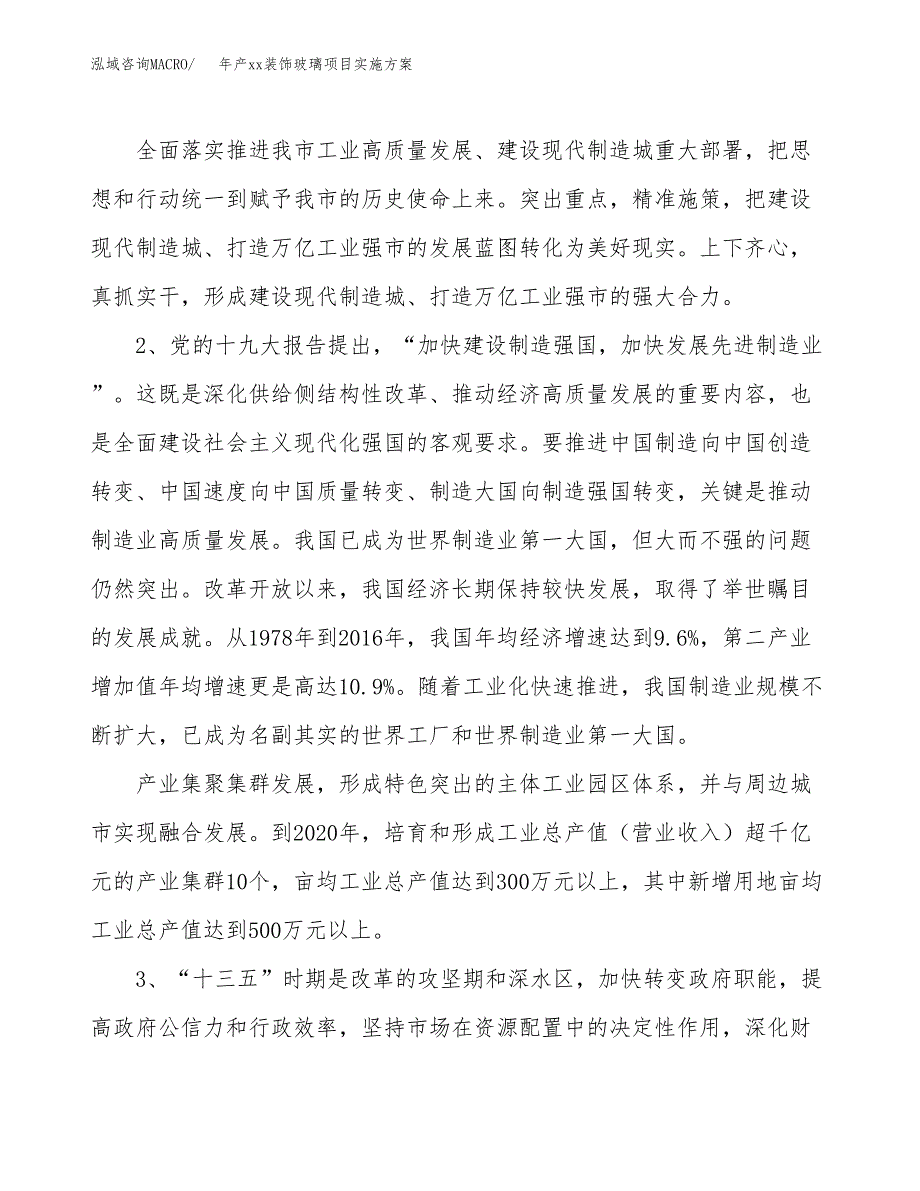 泓域咨询MACRO/ 年产xx装饰玻璃项目实施方案
全面落实推进我市工业高质量发展、建设现代制造城重大部署，把思
想和行动统一到赋予我市的历史使命上来。突出重点，精准施策，把建设
现代制造城、打造万亿工业强市的发展蓝图转化为美好现实。上下齐心，
真抓实干，形成建设现代制造城、打造万亿工业强市的强大合力。
2、党的十九大报告提出，“加快建设制造强国，加快发展先进制造业
”。这既是深化供给侧结构性改革、推动经济高质量发展的重要内容，也
是全面建设社会主义现代化强国的客观要求。要推进中国制造向中国创造
转变、中国速度向中国质量转变、制造大国向制造强国转变，关键是推动
制造业高质量发展。我国已成为世界制造业第一大国，但大而不强的问题
仍然突出。改革开放以来，我国经济长期保持较快发展，取得了举世瞩目
的发展成就。从1978年到2016年，我国年均经济增速达到9.6%，第二产业
增加值年均增速更是高达10.9%。随着工业化快速推进，我国制造业规模不
断扩大，已成为名副其实的世界工厂和世界制造业第一大国。
产业集聚集群发展，形成特色突出的主体工业园区体系，并与周边城
市实现融合发展。到2020年，培育和形成工业总产值（营业收入）超千亿
元的产业集群10个，亩均工业总产值达到300万元以上，其中新增用地亩均
工业总产值达到500万元以上。
3、“十三五”时期是改革的攻坚期和深水区，加快转变政府职能，提
高政府公信力和行政效率，坚持市场在资源配置中的决定性作用，深化财